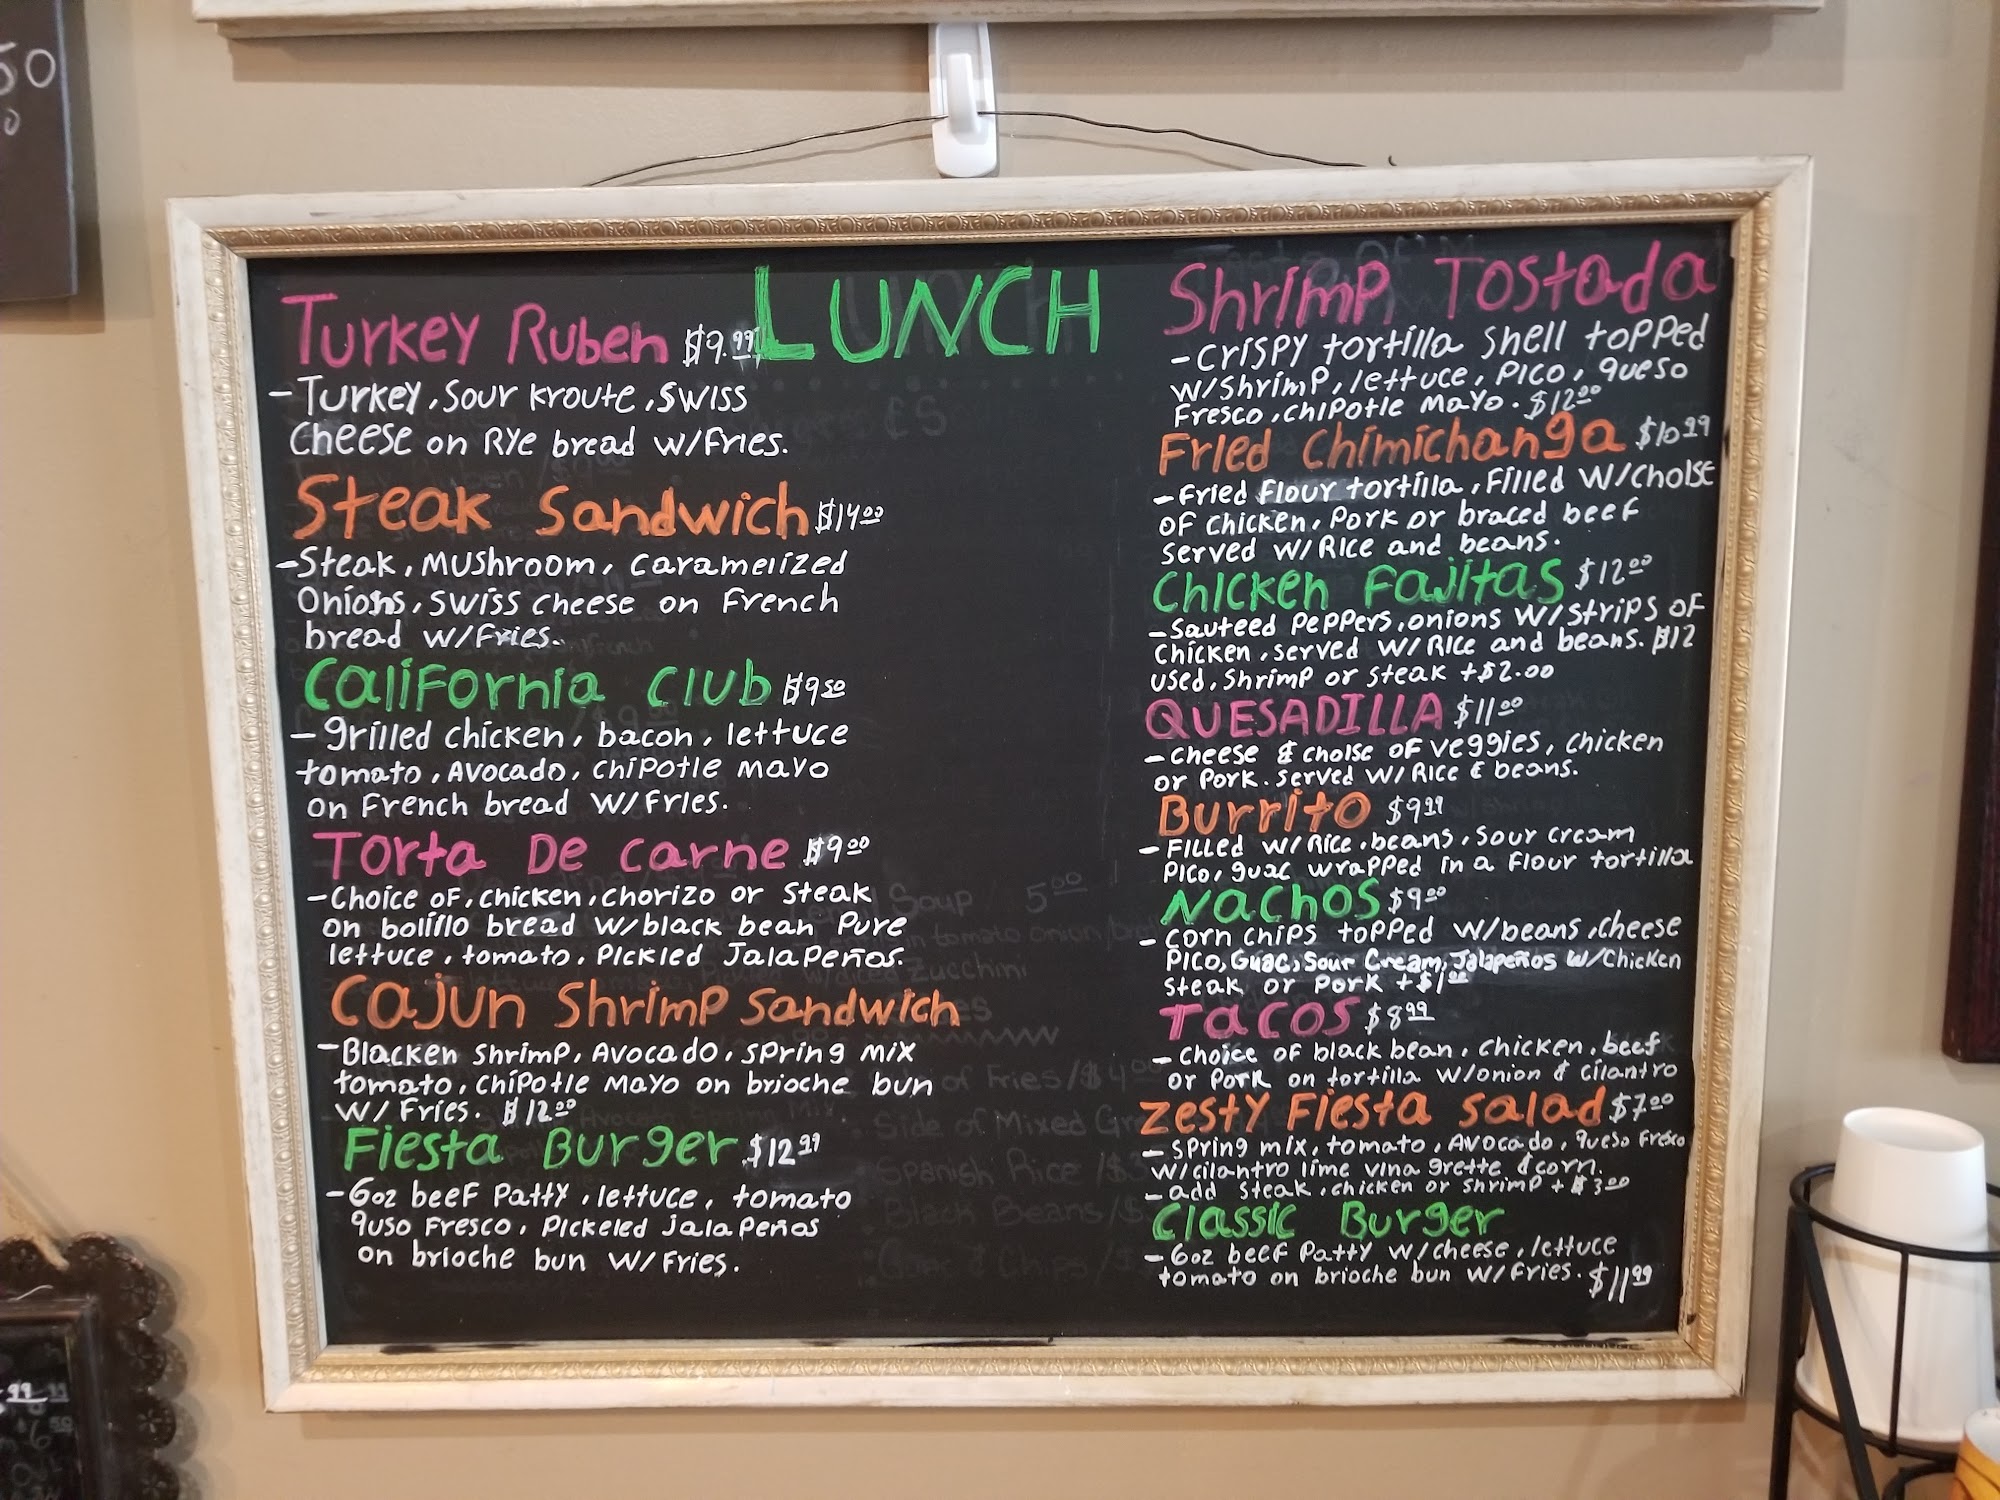 LUNCH
Turkey Ruben $9.99
- Turkey, Sour kroute, Swiss
Cheese on Rye bread w/Fries.
Steak Sandwich $14.00
- Steak, Mushroom, caramelized
Onions, Swiss cheese on French
bread w/Fries.
California Club $9.50
- grilled chicken, bacon, lettuce
tomato, Avocado, chipotle mayo
on French bread w/Fries.
Torta De Carne $9.00
- Choice of, chicken, chorizo or steak
on bolillo bread w/black bean Pure
lettuce, tomato, Pickled Jalapeños.
Cajun Shrimp Sandwich
- Blacken shrimp, Avocado, spring mix
tomato, chipotle mayo on brioche bun
w/ Fries. $12.00
Fiesta Burger $12.99
- 6oz beef Patty, lettuce, tomato
quso Fresco, Pickeled jalapeños
on brioche bun w/Fries.
Shrimp Tostada
- Crispy tortilla shell topped
w/shrimp, lettuce, Pico, queso
Fresco, chipotle mayo. $12.00
Fried Chimichanga $10.99
- Fried flour tortilla, Filled w/choise
of chicken, Pork or braced beef
served w/Rice and beans.
Chicken Fajitas $12.00
- Sauteed Peppers, onions w/strips of
Chicken, served w/Rice and beans. $12
used, shrimp or steak +$2.00
QUESADILLA $11.00
- Cheese & choise of veggies, chicken
or Pork. served w/Rice & beans.
Burrito $9.99
- Filled w/Rice, beans, sour cream
Pico, guac wrapped in a flour tortilla
Nachos $9.00
- Corn chips topped w/beans, cheese
Pico, Guac, Sour Cream, Jalapeños w/Chicken
steak or Pork +$1.00
Tacos $8.99
- Choice of black bean, chicken, beef
or Pork on tortilla w/onion & cilantro
Zesty Fiesta Salad $7.00
- spring mix, tomato, Avocado, queso Fresco
w/cilantro lime vina grette & corn.
- add steak, chicken or shrimp + $3.00
Classic Burger
- 6oz beef Patty w/cheese, lettuce
tomato on brioche bun w/Fries. $11.99